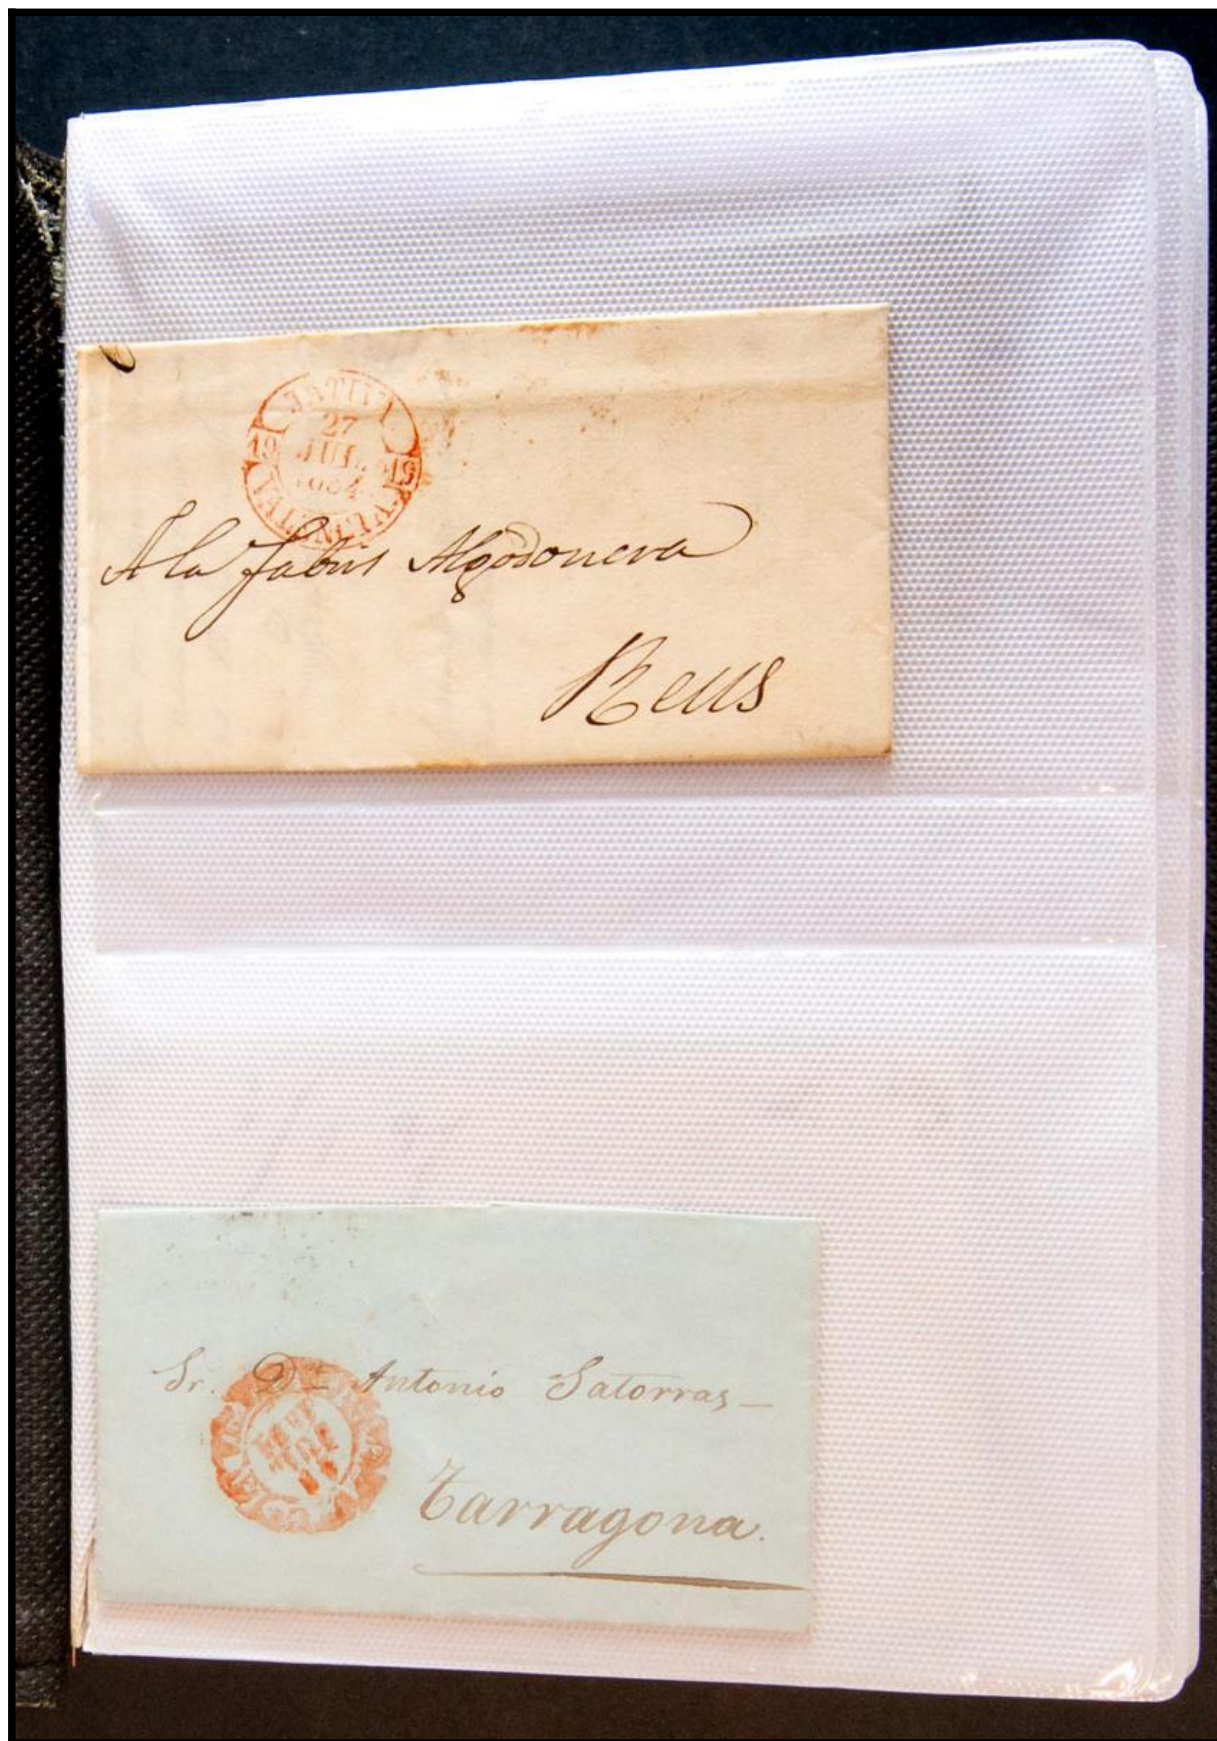 JATIVA
27
JUL.
1854
19 19
VALENCIA
A la fabril Algodonera
Reus
Sr. Dn Antonio Satorras
Tarragona.